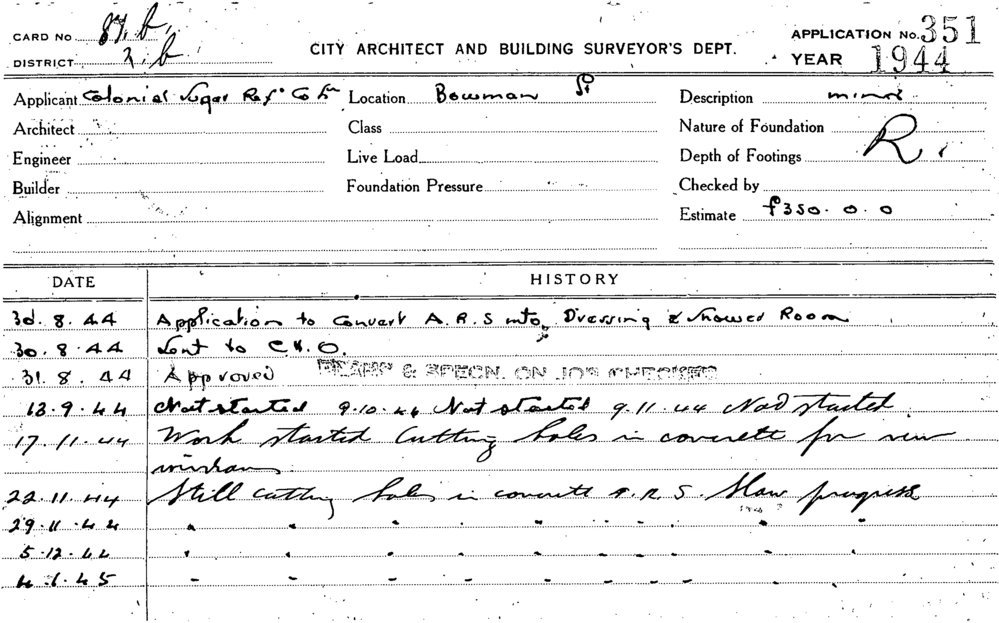 CARD NO
DISTRICT 2.b
CITY ARCHITECT AND BUILDING SURVEYOR'S DEPT.
APPLICATION No. 351
YEAR 1944
Applicant Colonial Sugar Ref. Co Location Bowman St Description minor
Architect Class Nature of Foundation R.
Engineer Live Load Depth of Footings
Builder Foundation Pressure Checked by
Alignment Estimate £350.0.0
DATE HISTORY
30.8.44 Application to convert A.R.S into Dressing & Shower Room
30.8.44 Sent to C.H.O.
31.8.44 Approved PLANS & SPECN. ON JOB CHECKED
13.9.44 Not started 9.10.44 Not started 9.11.44 Not started
17.11.44 Work started Cutting holes in concrete for new
windows
22.11.44 Still cutting holes in concrete A.R.S. Slow progress
29.11.44 " " " " " " " " "
5.12.44 " " " " " " " "
4.1.45 " " " " " " " "